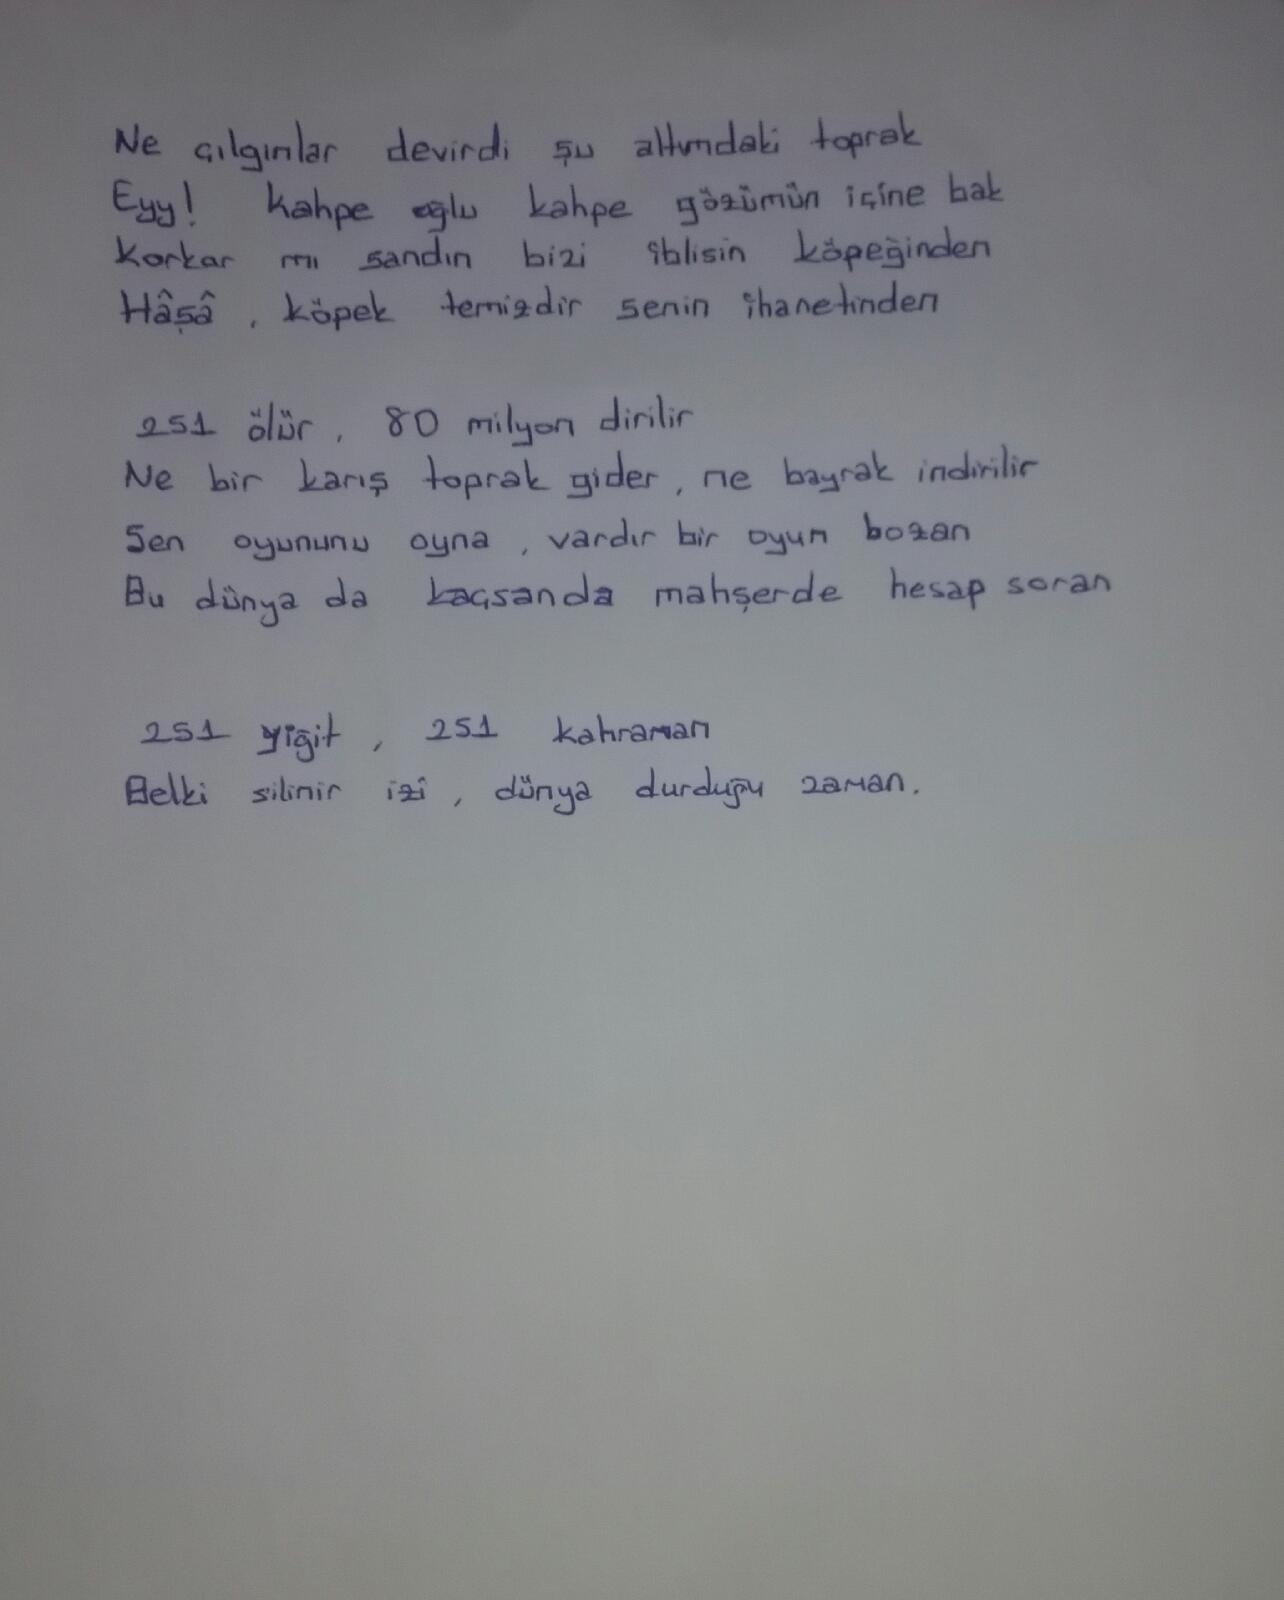 Ne çılgınlar devirdi şu altındaki toprak
Eyy! Kahpe oğlu kahpe gözümün içine bak
Korkar mı sandın bizi iblisin köpeğinden
Hâşâ, köpek temizdir senin ihanetinden
251 ölür, 80 milyon dirilir
Ne bir karış toprak gider, ne bayrak indirilir
Sen oyununu oyna, vardır bir oyun bozan
Bu dünya da kaçsanda mahşerde hesap soran
251 yiğit, 251 kahraman
Belki silinir izi, dünya durduğu zaman.